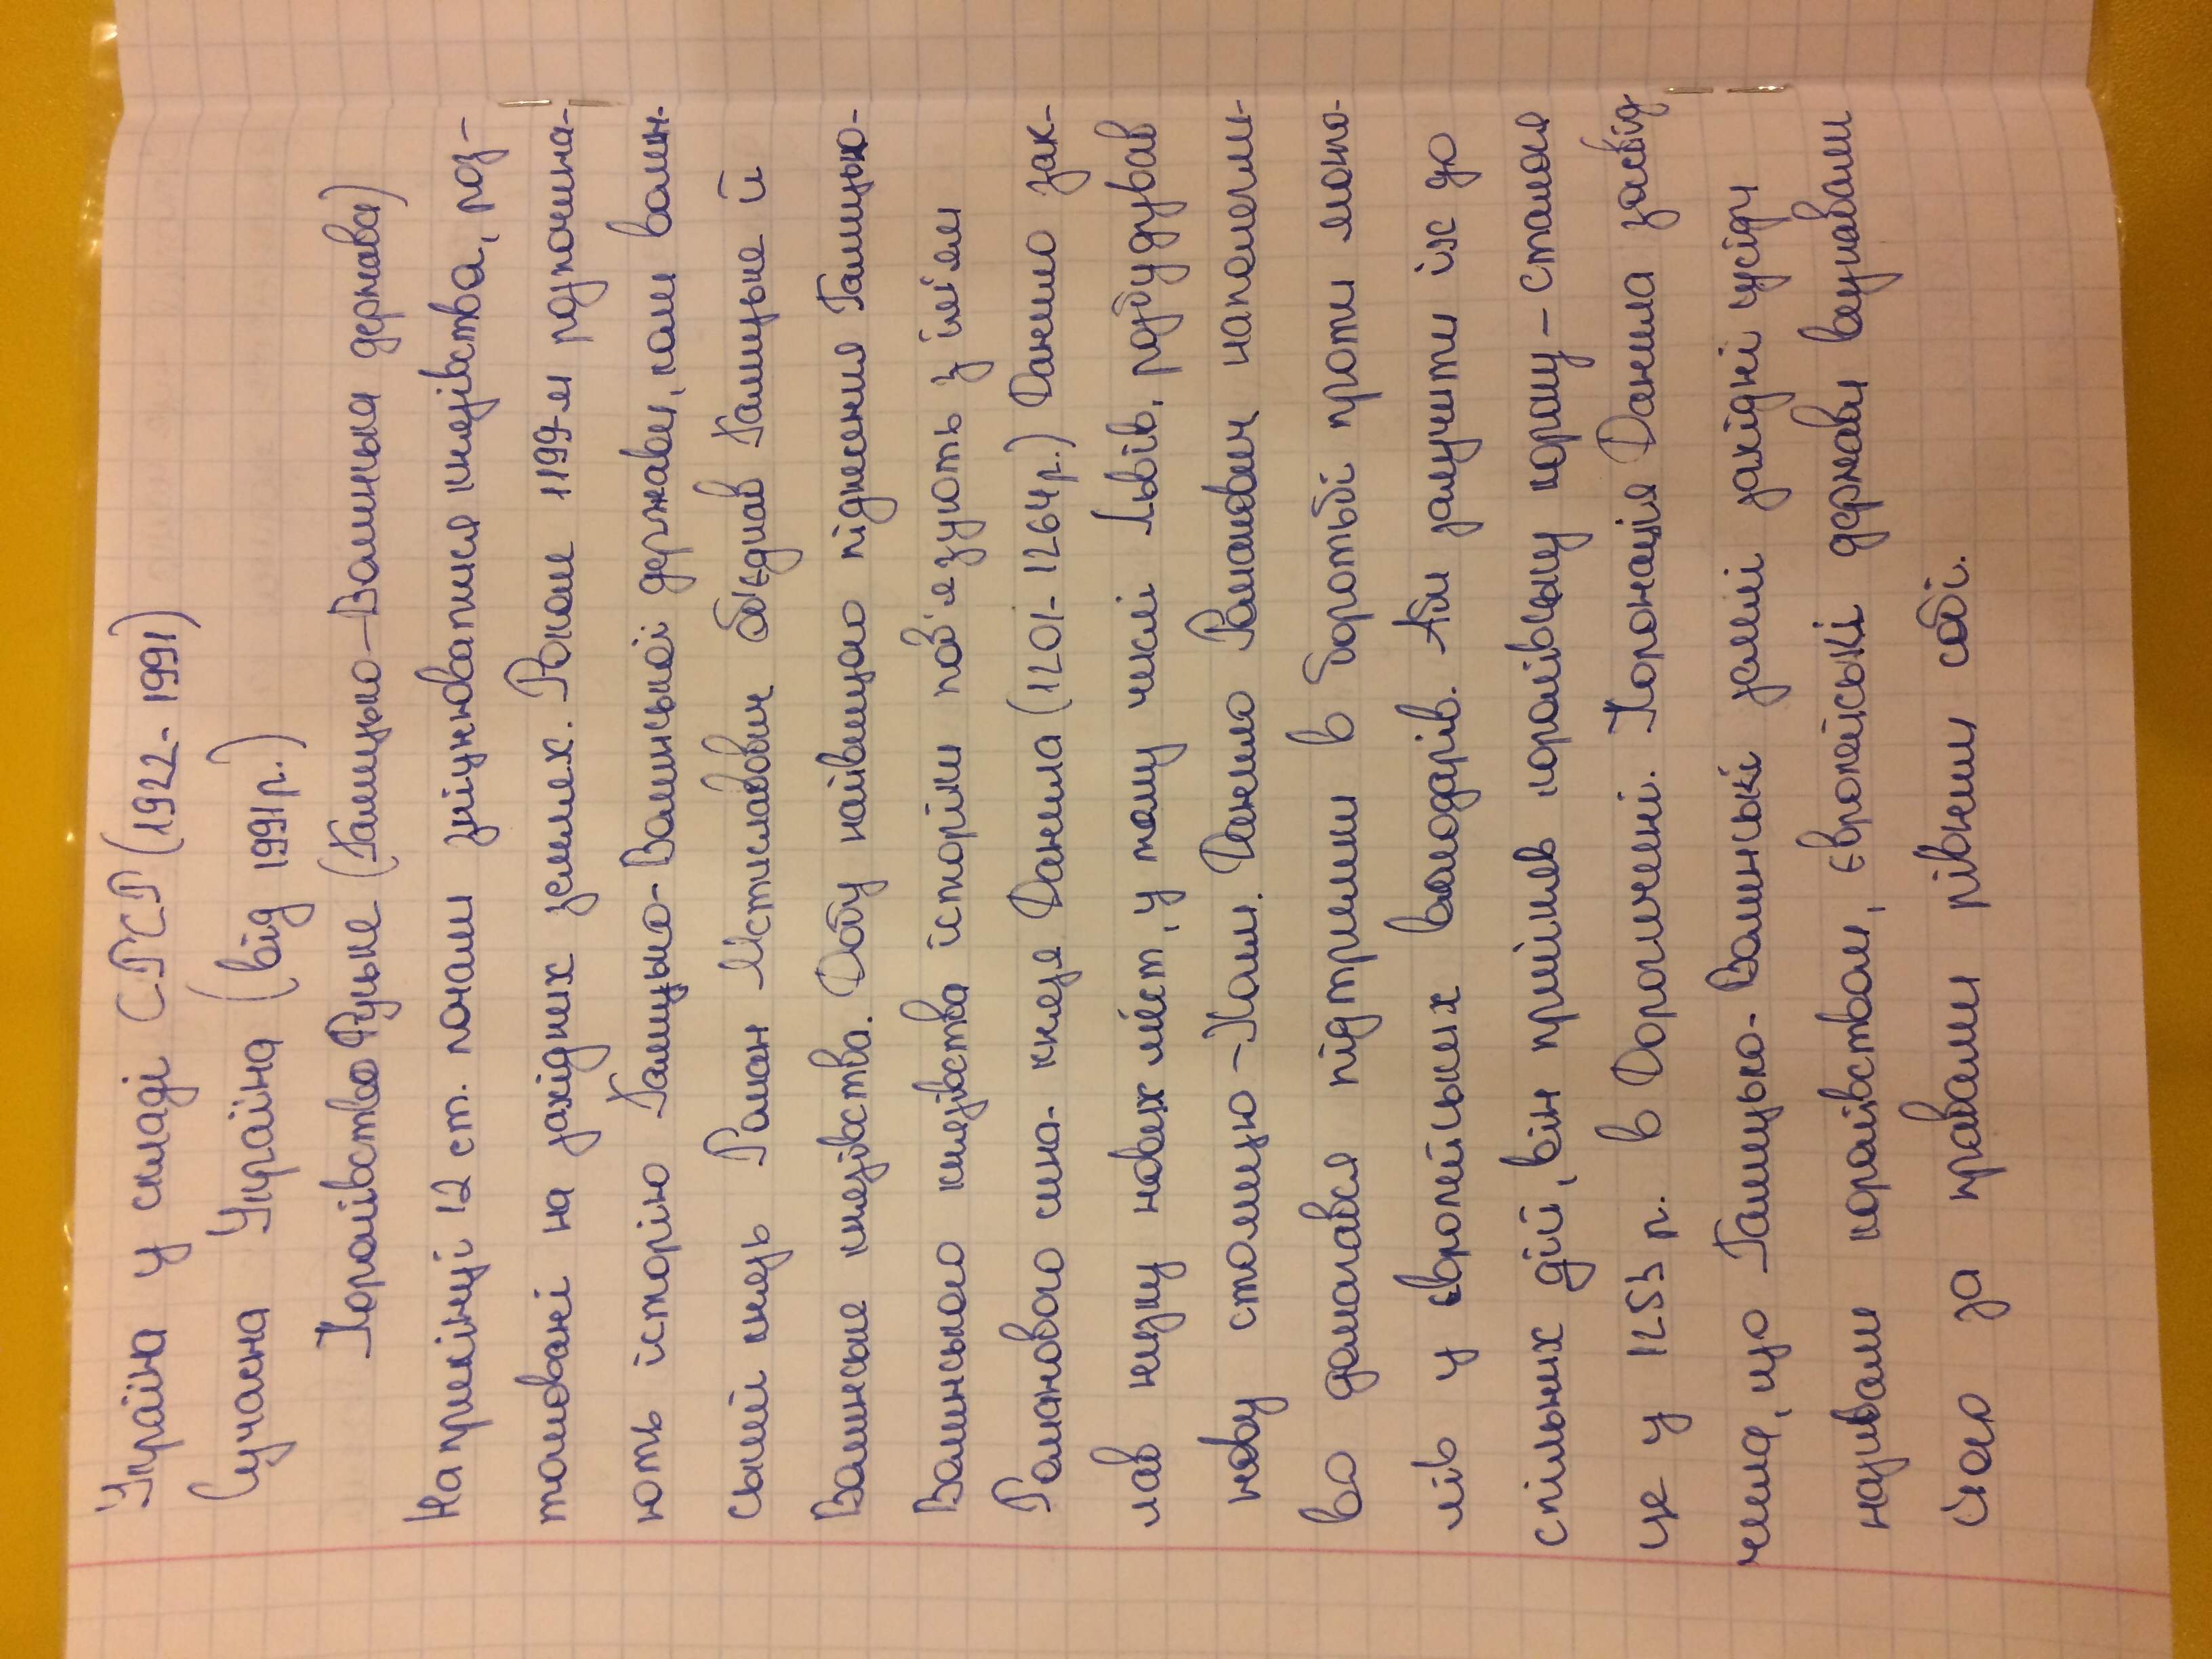 Україна у складі СРСР (1922-1991)
Сучасна Україна (від 1991р.)
Королівство Руське (Галицько-Волинська держава)
Наприкінці 12 ст. почали зміцнюватися князівства, роз-
ташовані на західних землях. Роком 1199-м розпочина-
ють історію Галицько-Волинської держави, коли волин-
ський князь Роман Мстиславович об'єднав Галицьке й
Волинське князівства. Добу найвищого піднесення Галицько-
Волинського князівства історики пов'язують з ім'ям
Романового сина- князя Данила (1201-1264р.) Данило зак-
лав низку нових міст, у тому числі Львів, розбудував
нову столицю -Холм. Данило Романович наполегли-
во домагався підтримки в боротьбі проти монго-
лів у європейських володарів. Аби залучити їх до
спільних дій, він прийняв королівську корону-сталося
це у 1253 р. в Дорогичині. Коронація Данила засвід
чила, що Галицько-Волинські землі західні сусіди
називали королівством, європейські держави вважали
його за правами рівним собі.